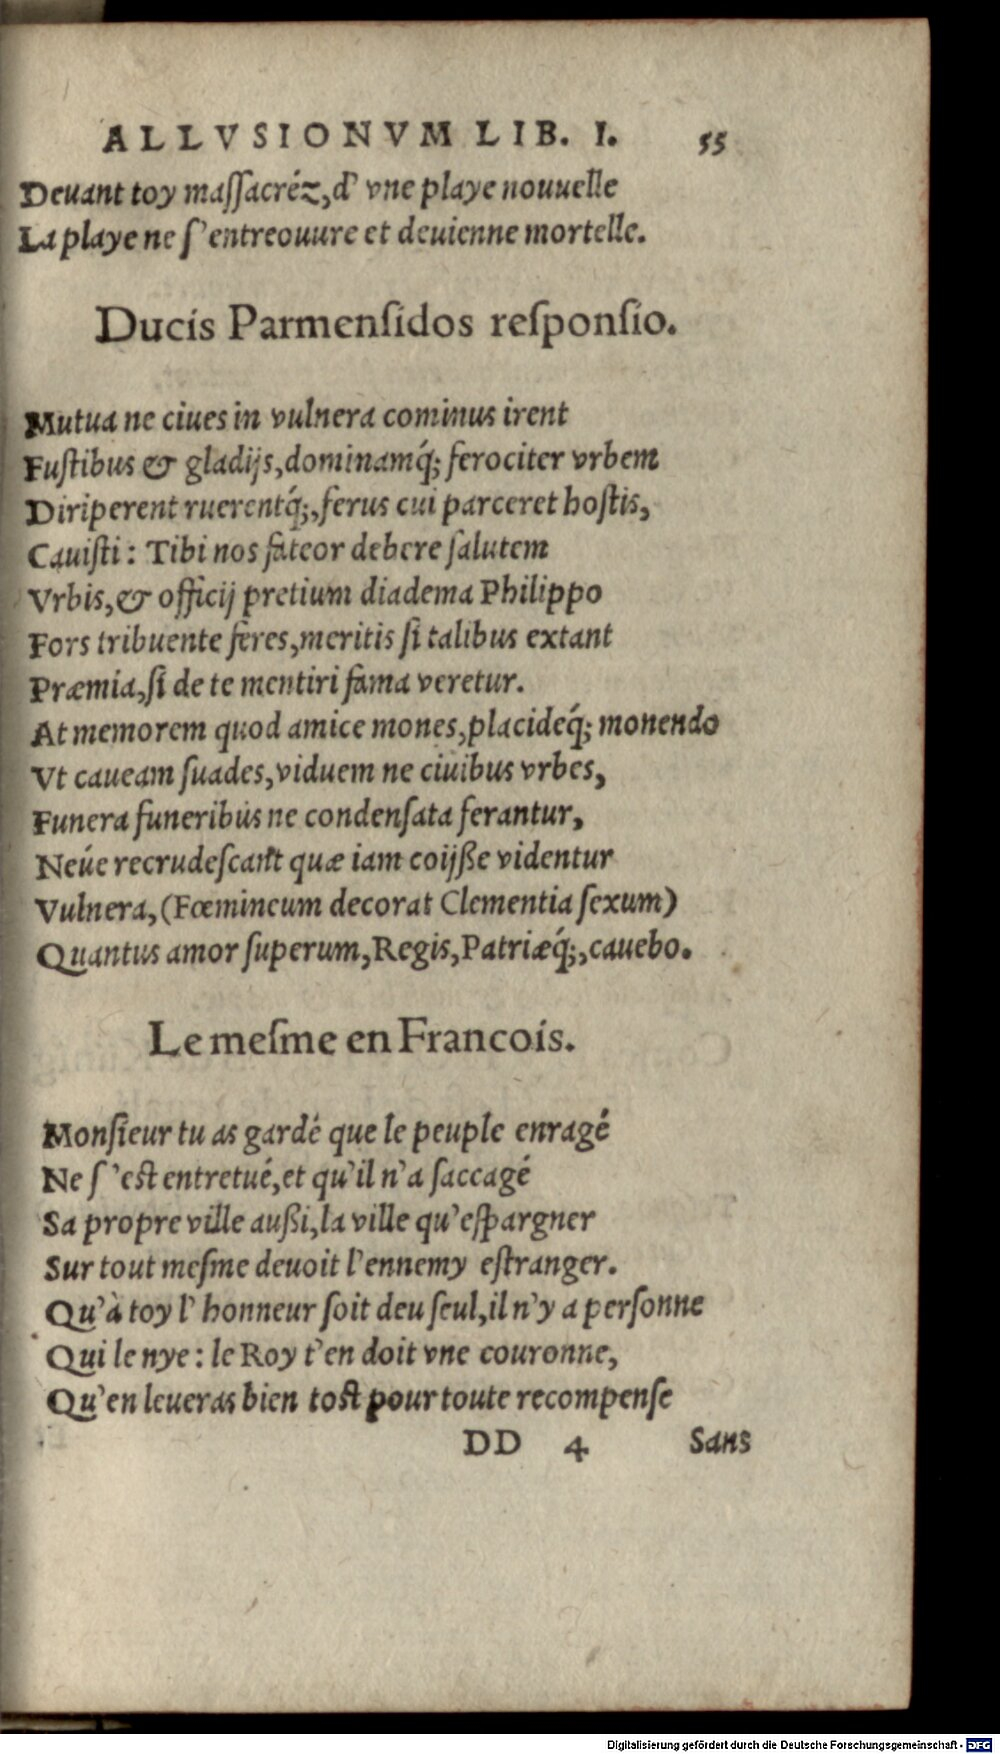 ALLVSIONVM LIB. I. 55
Deuant toy maſſacréz, d' vne playe nouuelle
La playe ne ſ'entreouure et deuienne mortelle.
Ducis Parmenſidos reſponſio.
Mutua ne ciues in vulnera cominus irent
Fuſtibus & gladijs, dominamq́; ferociter vrbem
Diriperent ruerentq́;, ferus cui parceret hoſtis,
Cauiſti: Tibi nos fateor debere ſalutem
Vrbis, & officij pretium diadema Philippo
Fors tribuente feres, meritis ſi talibus extant
Præmia, ſi de te mentiri fama veretur.
At memorem quod amice mones, placideq́; monendo
Vt caueam ſuades, viduem ne ciuibus vrbes,
Funera funeribús ne condenſata ferantur,
Neúe recrudeſcant quæ iam coijſſe videntur
Vulnera, (Fœmineum decorat Clementia ſexum)
Quantus amor ſuperum, Regis, Patriæq́;, cauebo.
Le meſme en Francois.
Monſieur tu as gardé que le peuple enragé
Ne ſ'eſt entretué, et qu'il n'a ſaccagé
Sa propre ville außi, la ville qu'eſpargner
Sur tout meſme deuoit l'ennemy eſtranger.
Qu'à toy l' honneur ſoit deu ſeul, il n'y a perſonne
Qui le nye: le Roy t'en doit vne couronne,
Qu'en leueras bien toſt pour toute recompenſe
DD 4 Sans
Digitalisierung gefördert durch die Deutsche Forschungsgemeinschaft - DFG